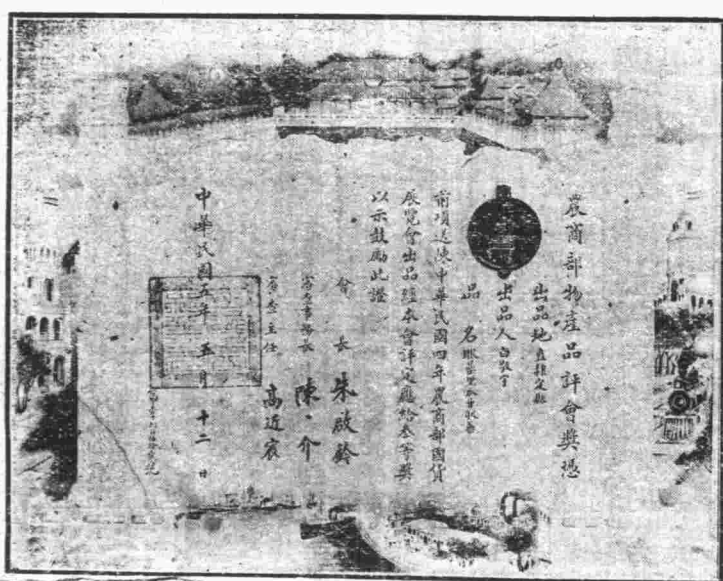 農商部物產品評會獎憑
出品地 直隸定縣
出品人 白敬宇
品名 眼藥
前項送陳中華民國四年農商部國貨
展覽會出品經本會評定應給叁等獎
以示鼓勵此證
會長 朱啟鈐
陳 介
審查主任 高近宸
中華民國五年五月十二日